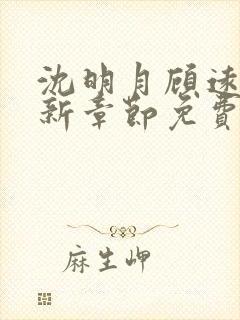 沈明月顾远
新章节免费
麻生岬